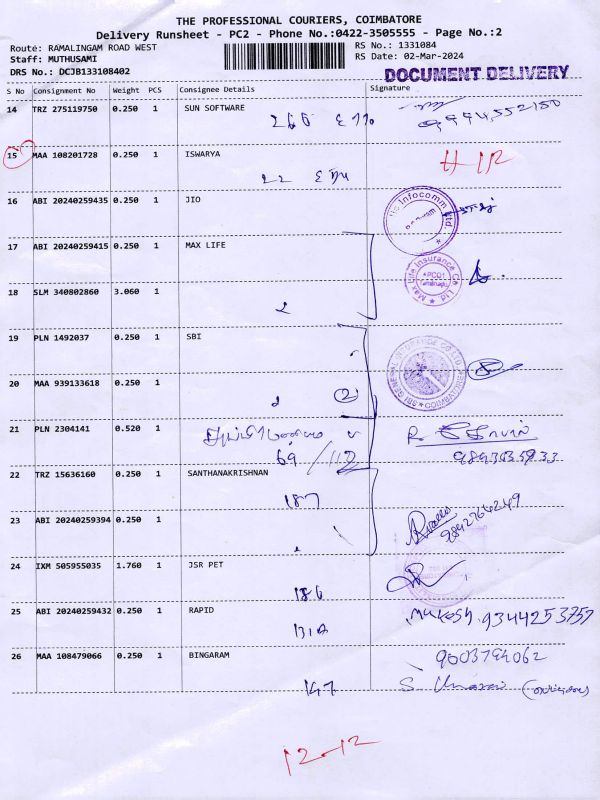 THE PROFESSIONAL COURIERS, COIMBATORE
Delivery Runsheet - PC2 - Phone No.:0422-3505555 - Page No.:2
Route: RAMALINGAM ROAD WEST
RS No.: 1331084
Staff: MUTHUSAMI
RS Date: 02-Mar-2024
DRS No.: DCJB133108402
DOCUMENT DELIVERY
S No Consignment No Weight PCS Consignee Details Signature
14 TRZ 275119750 0.250 1 SUN SOFTWARE
15 MAA 108201728 0.250 1 ISWARYA
22
16 ABI 20240259435 0.250 1 JIO
Infocomm Ltd.
17 ABI 20240259415 0.250 1 MAX LIFE
Max Life Insurance Co Ltd
18 SLM 340802860 3.060 1
2
19 PLN 1492037 0.250 1 SBI
SBI GENERAL INSURANCE CO LTD
20 MAA 939133618 0.250 1
2
21 PLN 2304141 0.520 1
69 / 112
22 TRZ 15636160 0.250 1 SANTHANAKRISHNAN
187
23 ABI 20240259394 0.250 1
9842764249
24 IXM 505955035 1.760 1 JSR PET
186
25 ABI 20240259432 0.250 1 RAPID
Mukesh. 9344253757
26 MAA 108479066 0.250 1 BINGARAM
9003794062
147
12-12